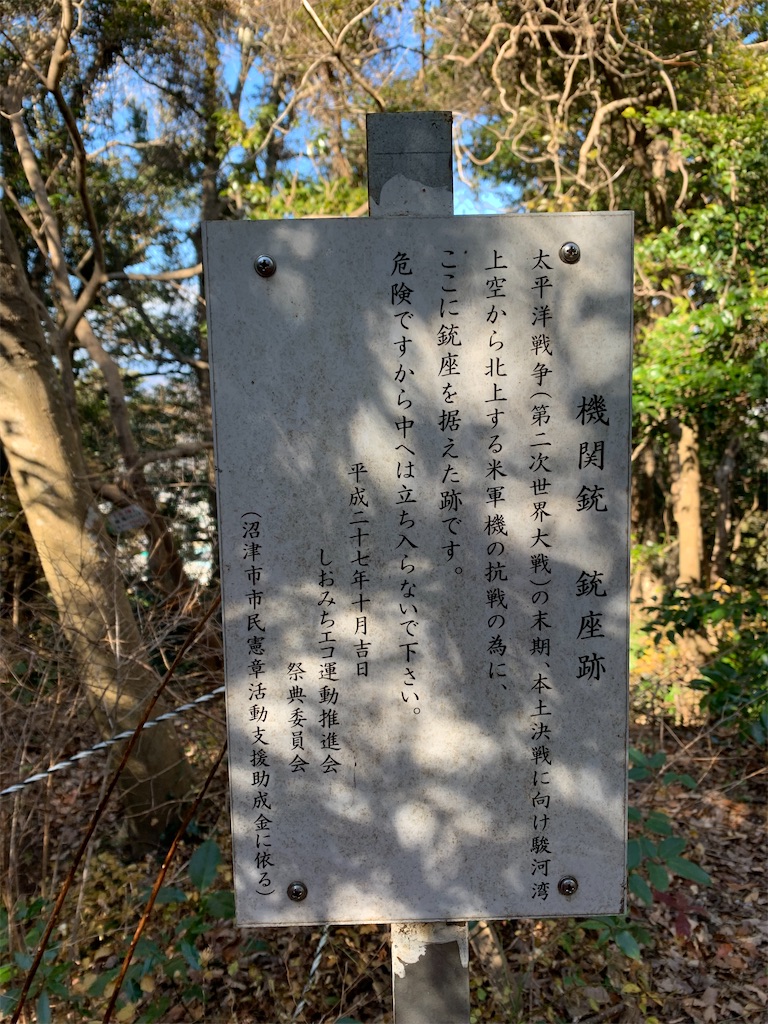 機関銃　銃座跡
太平洋戦争(第二次世界大戦)の末期、本土決戦に向け駿河湾
上空から北上する米軍機の抗戦の為に、
ここに銃座を据えた跡です。
危険ですから中へは立ち入らないで下さい。
平成二十七年十月吉日
しおみちエコ運動推進会
祭典委員会
(沼津市市民憲章活動支援助成金に依る)